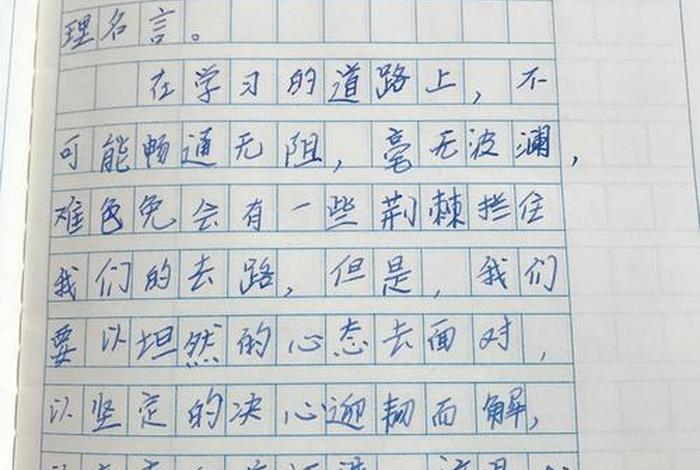 理名言。
在学习的道路上，不
可能畅通无阻，毫无波澜，
难色免会有一些荆棘拦住
我们的去路，但是，我们
要以坦然的心态去面对，
以坚定的决心迎韧而解，